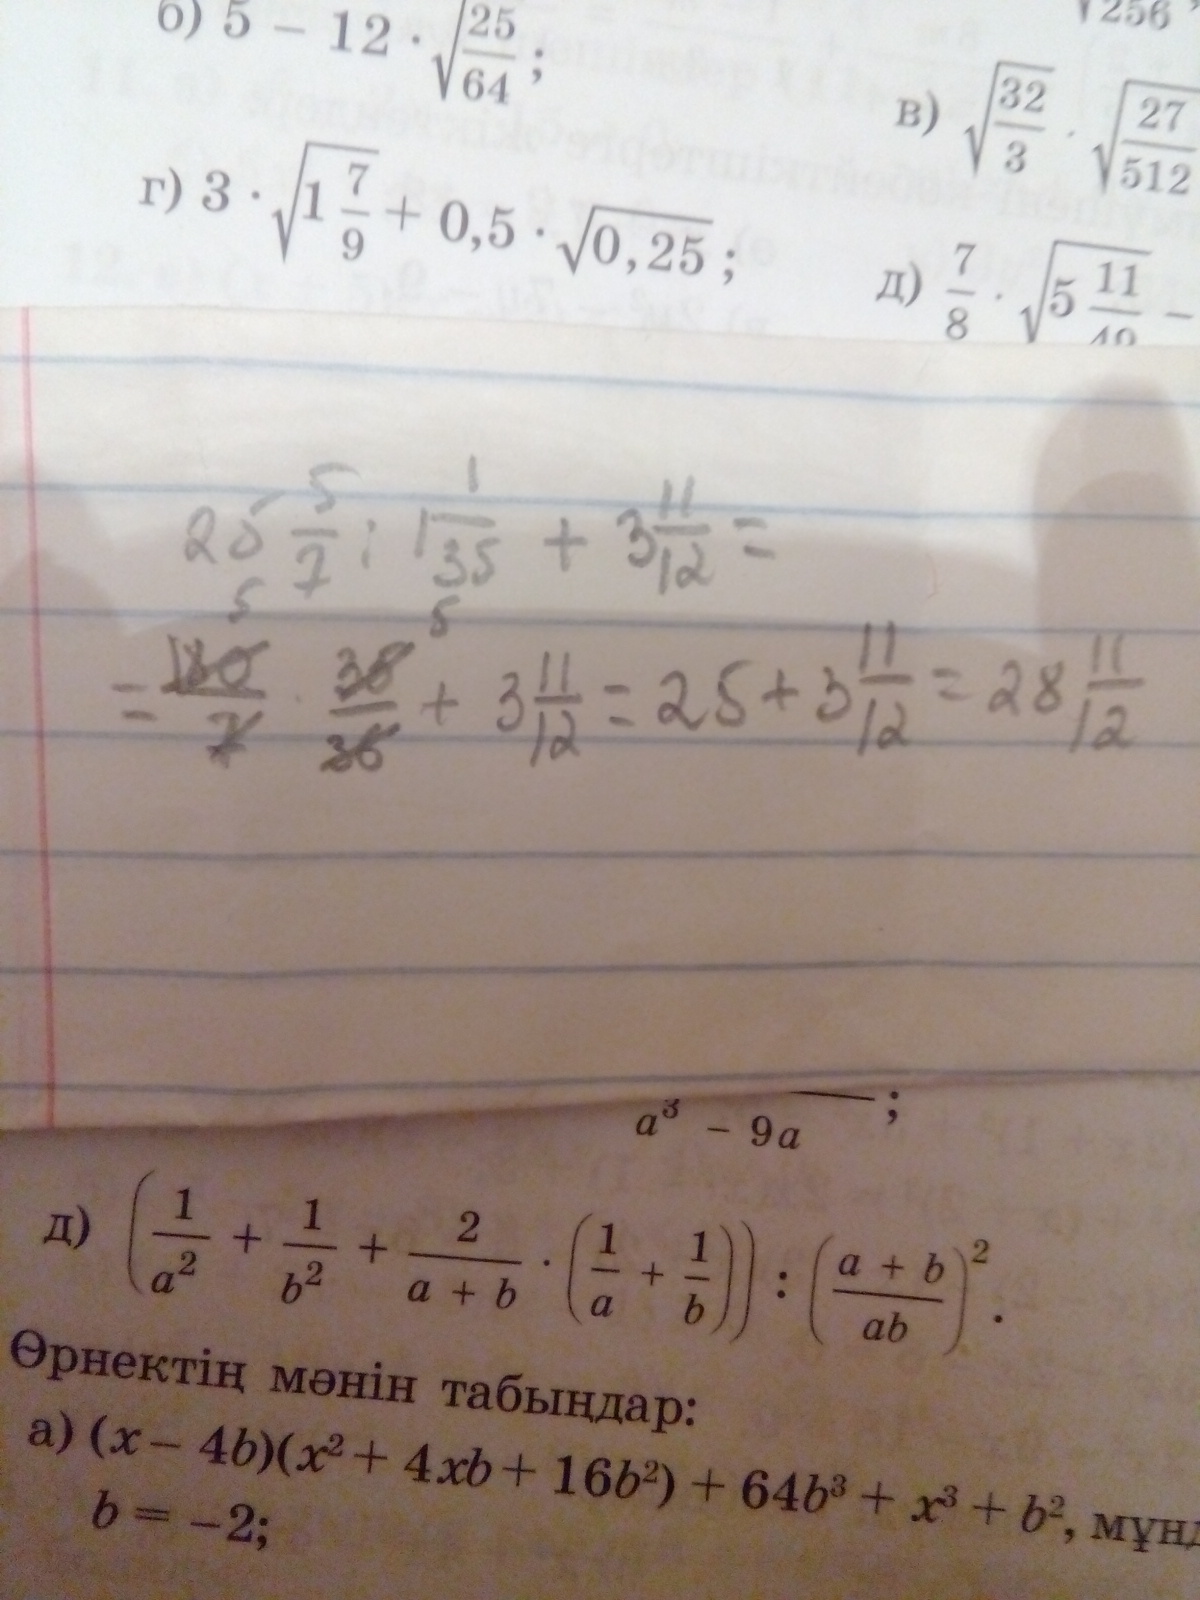 б) 5 − 12 · √(25/64);
√256
в) √(32/3) · √(27/512)
г) 3 · √(1 7/9) + 0,5 · √0,25;
д) 7/8 · √(5 11/49) −
25 5/7 : 1 1/35 + 3 11/12 =
5 5
= 180/7 · 35/36 + 3 11/12 = 25 + 3 11/12 = 28 11/12
a³ − 9a ;
д) (1/a² + 1/b² + 2/(a + b) · (1/a + 1/b)) : ((a + b)/ab)².
Өрнектің мәнін табыңдар:
а) (x − 4b)(x² + 4xb + 16b²) + 64b³ + x³ + b², мұнд
b = −2;